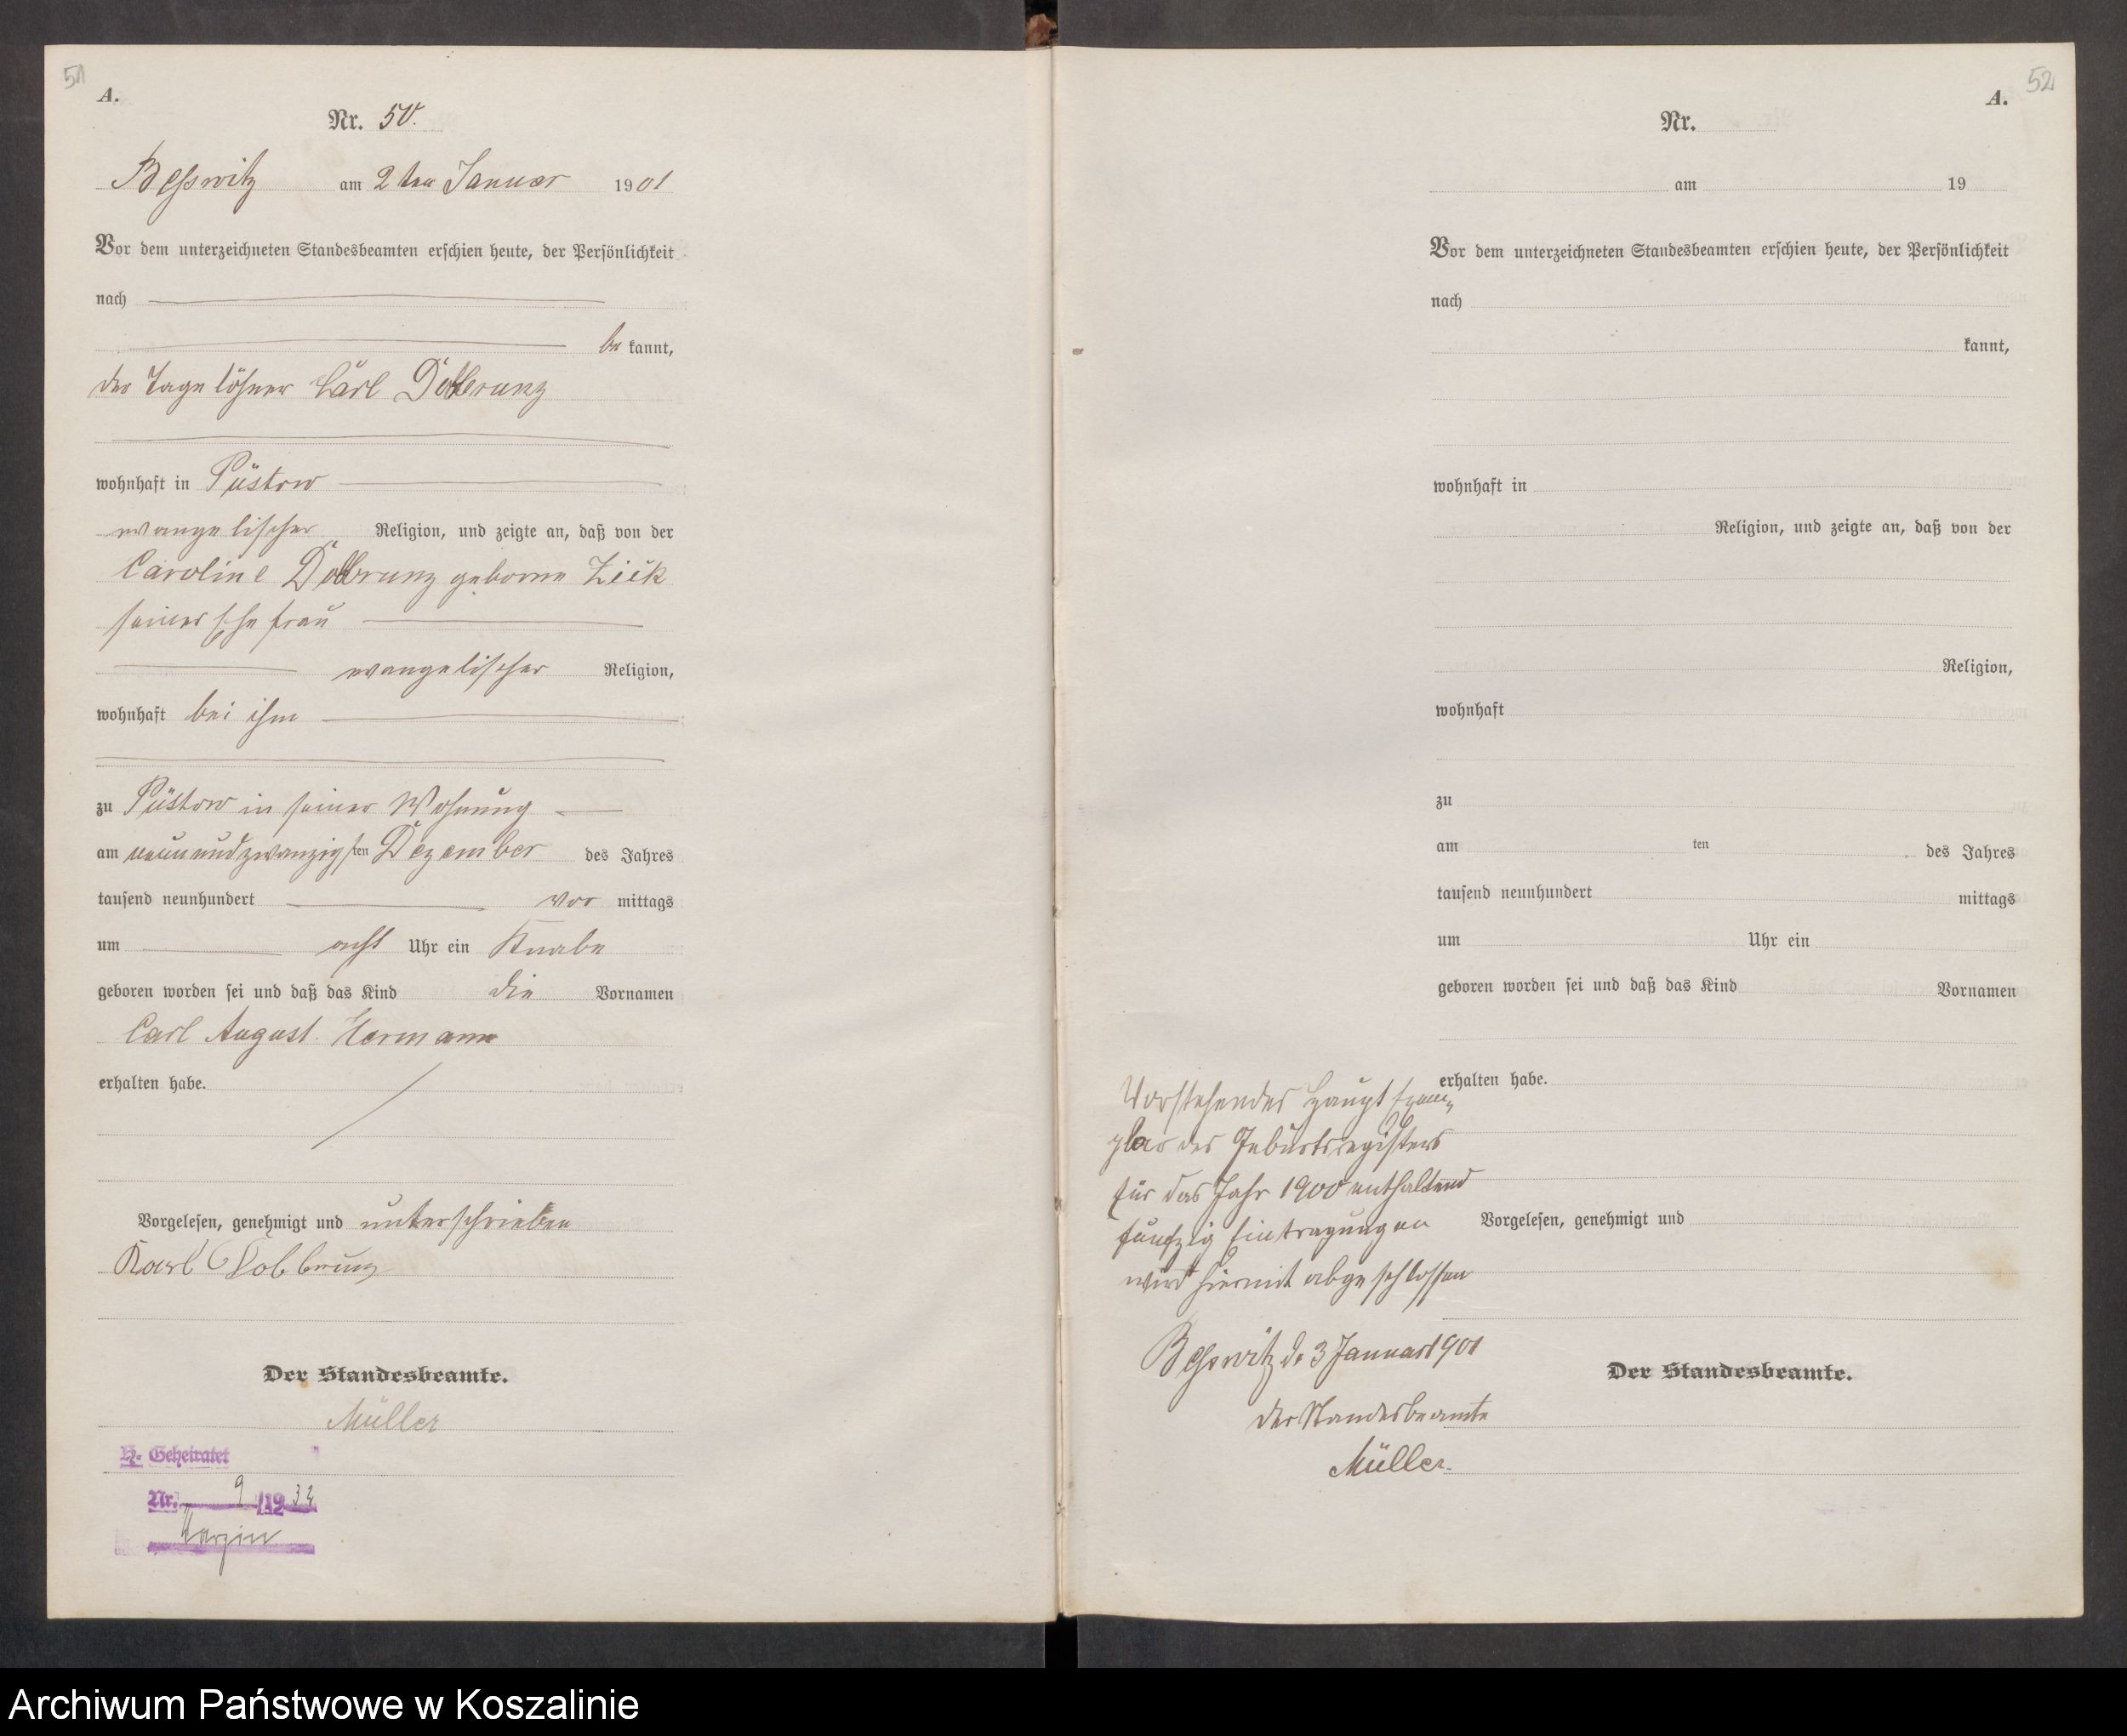 51
A.
Nr. 50.
Beßwitz am 2ten Januar 1901
Vor dem unterzeichneten Standesbeamten erschien heute, der Persönlichkeit
nach
be kannt,
der Tagelöhner Carl
wohnhaft in Püstow
evangelischer Religion, und zeigte an, daß von der
Caroline geborne Zick
seiner Ehefrau
evangelischer Religion,
wohnhaft bei ihm
zu Püstow in seiner Wohnung
am neunundzwanzigsten Dezember des Jahres
tausend neunhundert vor mittags
um acht Uhr ein Knabe
geboren worden sei und daß das Kind die Vornamen
Carl August Hermann
erhalten habe.
Vorgelesen, genehmigt und unterschrieben
Karl Dobbrunz
Der Standesbeamte.
Müller
H. Geheiratet
Nr. 9/19
Varzin
52
A.
Nr.
am 19
Vor dem unterzeichneten Standesbeamten erschien heute, der Persönlichkeit
nach
kannt,
wohnhaft in
Religion, und zeigte an, daß von der
Religion,
wohnhaft
zu
am ten des Jahres
tausend neunhundert mittags
um Uhr ein
geboren worden sei und daß das Kind Vornamen
erhalten habe.
Vorgelesen, genehmigt und
Der Standesbeamte.
Vorstehendes Haupt Exem-
plar des Geburtsregisters
für das Jahr 1900 enthaltend
fünfzig Eintragungen
wird hiermit abgeschlossen
Beßwitz d. 3 Januar 1901
der Standesbeamte
Müller.
Archiwum Państwowe w Koszalinie